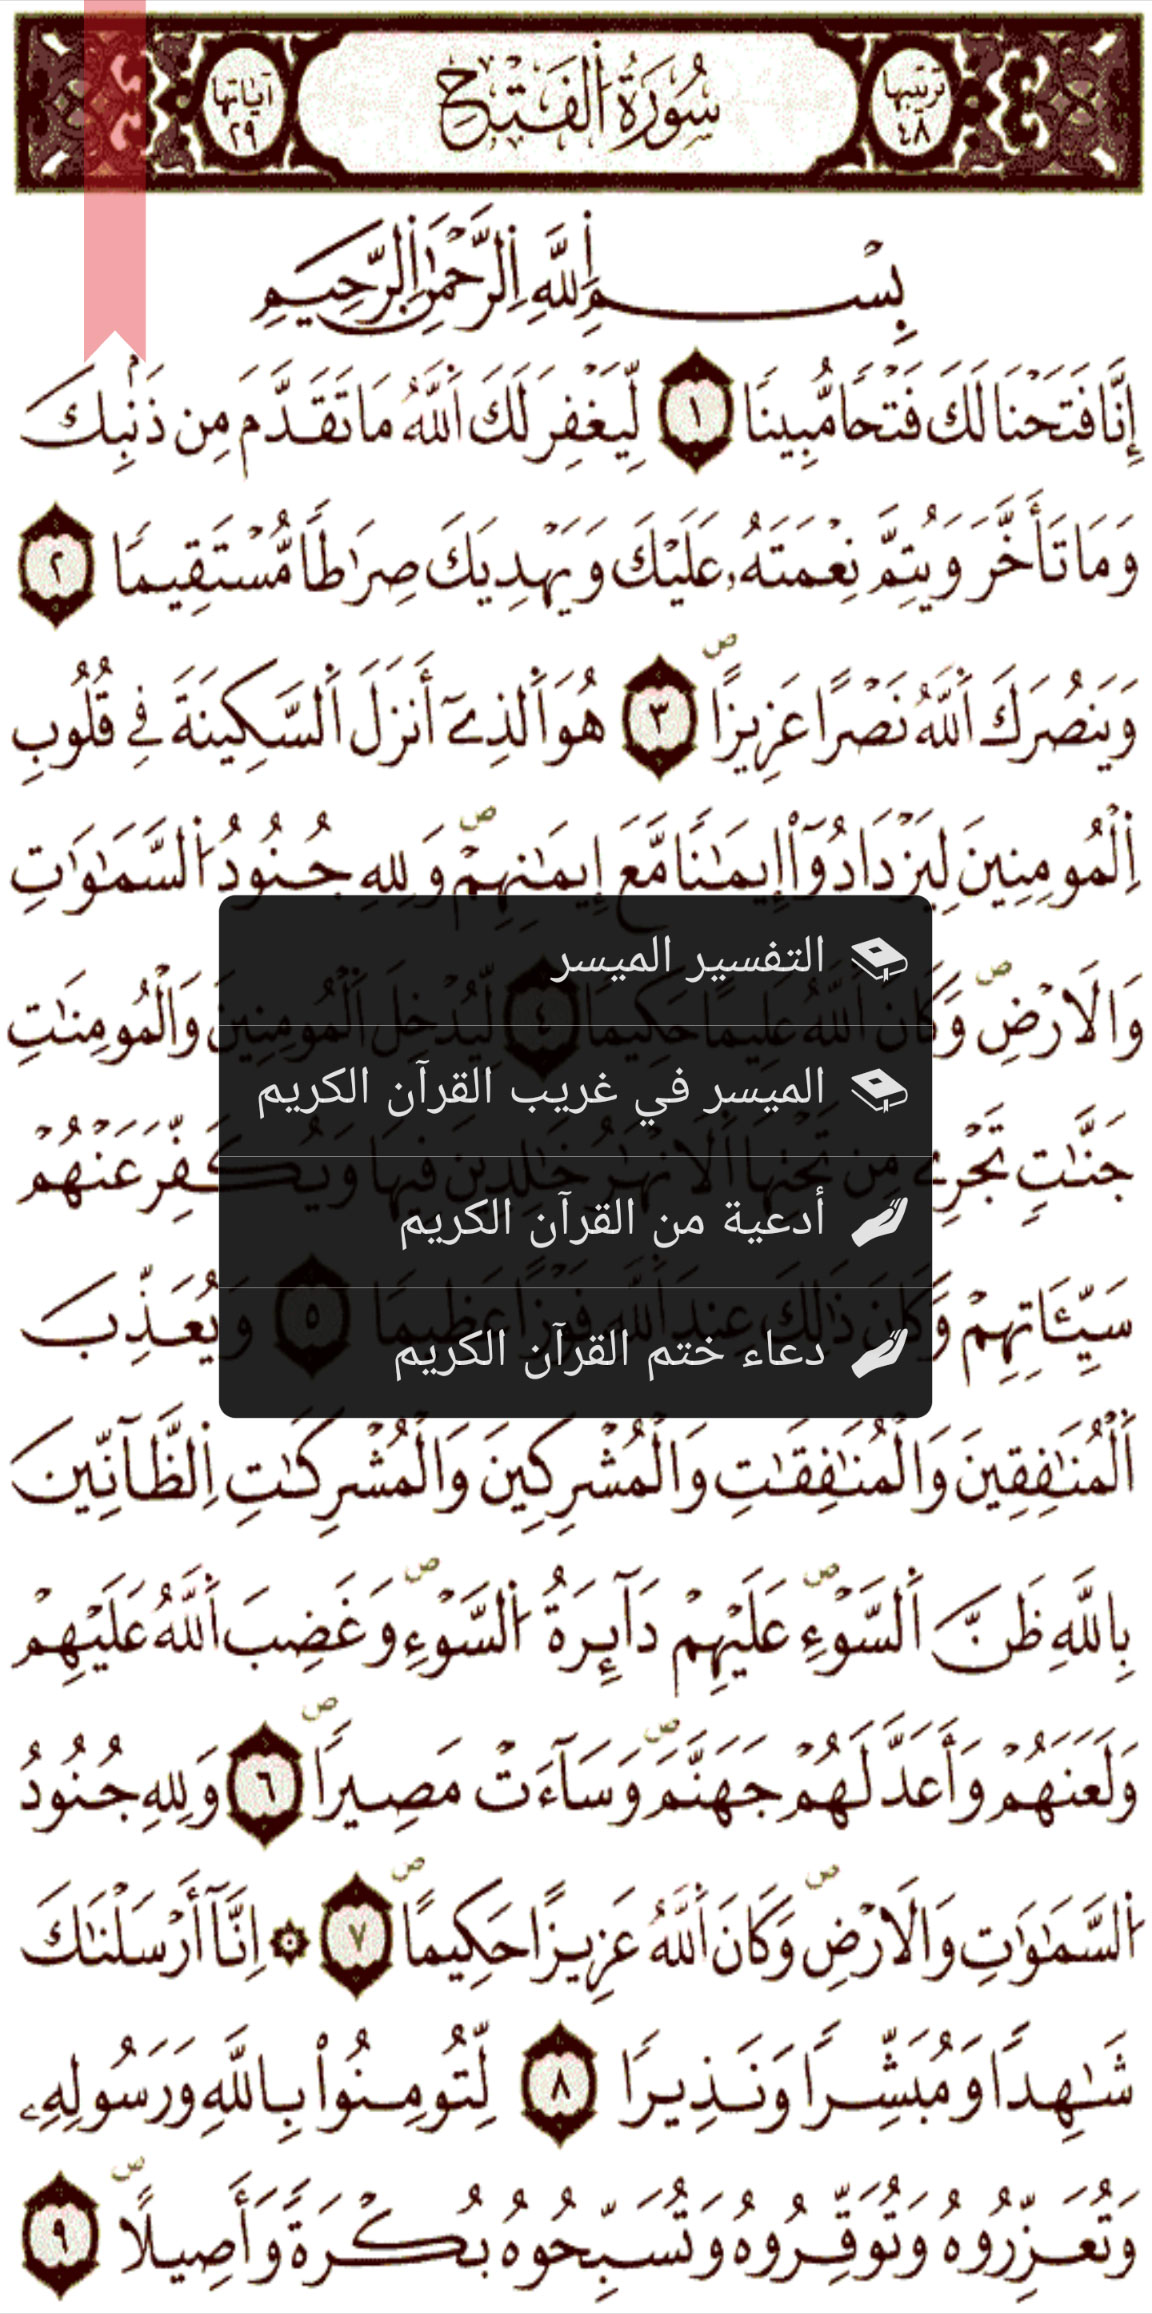 ترتيبها ٤٨ سُورَةُ اَلْفَتْحِ آياتها ٢٩
بِسْمِ اِللَّهِ اِلرَّحْمَٰنِ اِلرَّحِيمِ
إِنَّا فَتَحْنَا لَكَ فَتْحًا مُّبِينًا ١ لِّيَغْفِرَ لَكَ اَللَّهُ مَا تَقَدَّمَ مِن ذَنۢبِكَ
وَمَا تَأَخَّرَ وَيُتِمَّ نِعْمَتَهُۥ عَلَيْكَ وَيَهْدِيَكَ صِرَٰطًا مُّسْتَقِيمًا ٢
وَيَنصُرَكَ اَللَّهُ نَصْرًا عَزِيزًا ۖ ٣ هُوَ اَلذِےٓ أَنزَلَ اَلسَّكِينَةَ فِے قُلُوبِ
اِلْمُومِنِينَ لِيَزْدَادُوٓاْ إِيمَٰنًا مَّعَ إِيمَٰنِهِمْ ۖ وَلِلهِ جُنُودُ اُلسَّمَٰوَٰتِ
وَالَارْضِ ۖ وَكَانَ اَللَّهُ عَلِيمًا حَكِيمًا ٤ لِّيُدْخِلَ اَلْمُومِنِينَ وَالْمُومِنَٰتِ
جَنَّٰتٍ تَجْرِے مِن تَحْتِهَا اَلَانْهَٰرُ خَٰلِدِينَ فِيهَا وَيُكَفِّرَ عَنْهُمْ
سَيِّـَٔاتِهِمْ وَكَانَ ذَٰلِكَ عِندَ اَللَّهِ فَوْزًا عَظِيمًا ٥ وَيُعَذِّبَ
اَلْمُنَٰفِقِينَ وَالْمُنَٰفِقَٰتِ وَالْمُشْرِكِينَ وَالْمُشْرِكَٰتِ اِلظَّآنِّينَ
بِاللَّهِ ظَنَّ اَلسَّوْءِ ۖ عَلَيْهِمْ دَآئِرَةُ اُلسَّوْءِ ۖ وَغَضِبَ اَللَّهُ عَلَيْهِمْ
وَلَعَنَهُمْ وَأَعَدَّ لَهُمْ جَهَنَّمَ ۖ وَسَآءَتْ مَصِيرًا ۖ ٦ وَلِلهِ جُنُودُ
اُلسَّمَٰوَٰتِ وَالَارْضِ ۖ وَكَانَ اَللَّهُ عَزِيزًا حَكِيمًا ۖ ٧ ۞ اِنَّآ أَرْسَلْنَٰكَ
شَٰهِدًا وَمُبَشِّرًا وَنَذِيرًا ٨ لِّتُومِنُواْ بِاللَّهِ وَرَسُولِهِۦ
وَتُعَزِّرُوهُ وَتُوَقِّرُوهُ وَتُسَبِّحُوهُ بُكْرَةً وَأَصِيلًا ۖ ٩
التفسير الميسر
الميسر في غريب القرآن الكريم
أدعية من القرآن الكريم
دعاء ختم القرآن الكريم